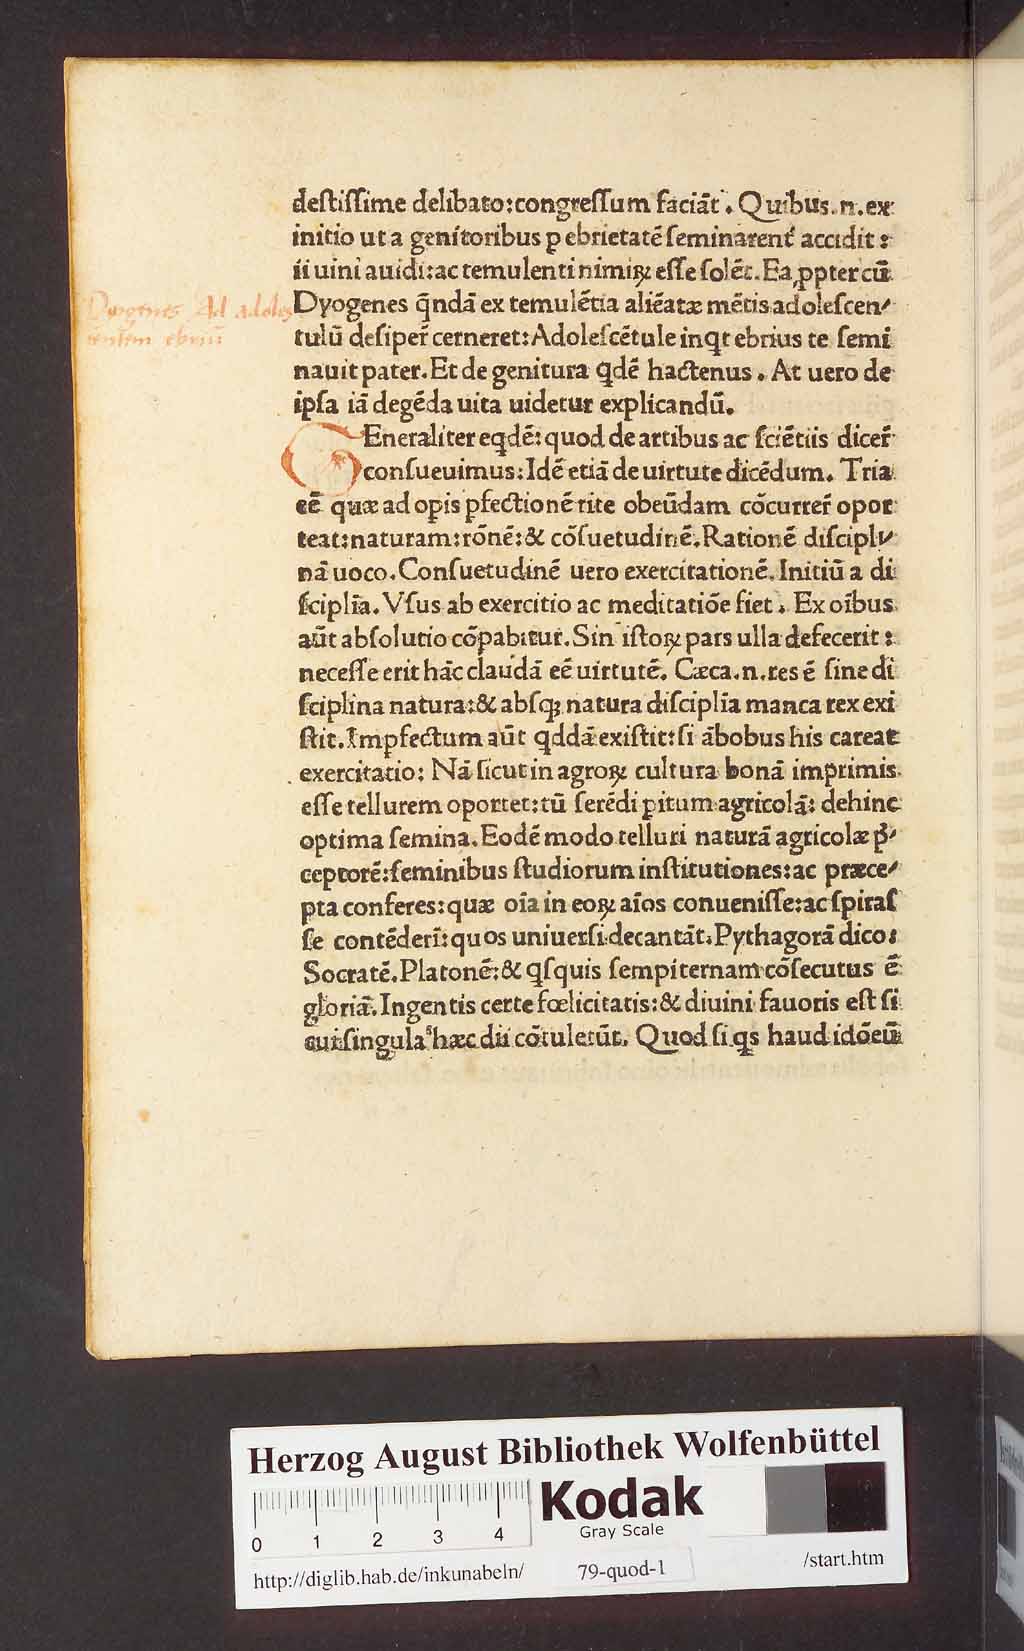 deſtiſſime delibato:congreſſum faciãt. Quibus.n.ex
initio ut a genitoribus p ebrietatẽ ſeminarent᷑ accidit:
ii uini auidi:ac temulenti nimiꝝ eſſe ſolẽt. Ea ꝓpter cũ
Dyogenes q̃ndã ex temulẽtia aliẽatæ mẽtis adoleſcen⸗
tulũ deſiper̃ cerneret:Adoleſcẽtule inqͥt ebrius te ſemi
nauit pater. Et de genitura qͥdẽ hactenus. At uero de
ipſa iã degẽda uita uidetur explicandũ.
Dyogenes Ad adoles
centem ebriũ
GEneraliter eqͥdẽ: quod de artibus ac ſciẽtiis dicer̃
conſueuimus:Idẽ etiã de uirtute dicẽdum. Tria
eẽ quæ ad opis ꝑfectionẽ rite obeũdam cõcurrer̃ opor
teat:naturam:rõnẽ:& cõſuetudinẽ. Rationẽ diſcipli⸗
nã uoco. Conſuetudinẽ uero exercitationẽ. Initiũ a di
ſciplĩa. Vſus ab exercitio ac meditatiõe fiet. Ex oĩbus
aũt abſolutio cõpabitur. Sin iſtoꝝ pars ulla defecerit:
neceſſe erit hãc claudã eẽ uirtutẽ. Cæca.n.res ẽ ſine di
ſciplina natura:& abſqꝫ natura diſciplĩa manca rex exi
ſtit. Impfectum aũt qͥddã exiſtit:ſi ãbobus his careat
exercitatio: Nã ſicut in agroꝝ cultura bonã imprimis
eſſe tellurem oportet:tũ ſerẽdi ꝑitum agricolã: dehinc
optima ſemina. Eodẽ modo telluri naturã agricolæ p̃⸗
ceptorẽ:ſeminibus ſtudiorum inſtitutiones:ac præce⸗
pta conferes:quæ oĩa in eoꝝ aĩos conueniſſe:ac ſpiraſ
ſe contẽderĩ:quos uniuerſi decantãt. Pythagorã dico:
Socratẽ. Platonẽ:& qͥſquis ſempiternam cõſecutus ẽ
gloriã. Ingentis certe fœlicitatis:& diuini fauoris eſt ſi
cui ſingula hæc dii cõtulerũt. Quod ſi qͥs haud idõeũ
Herzog August Bibliothek Wolfenbüttel
Kodak
Gray Scale
0 1 2 3 4
http://diglib.hab.de/inkunabeln/ 79-quod-1 /start.htm